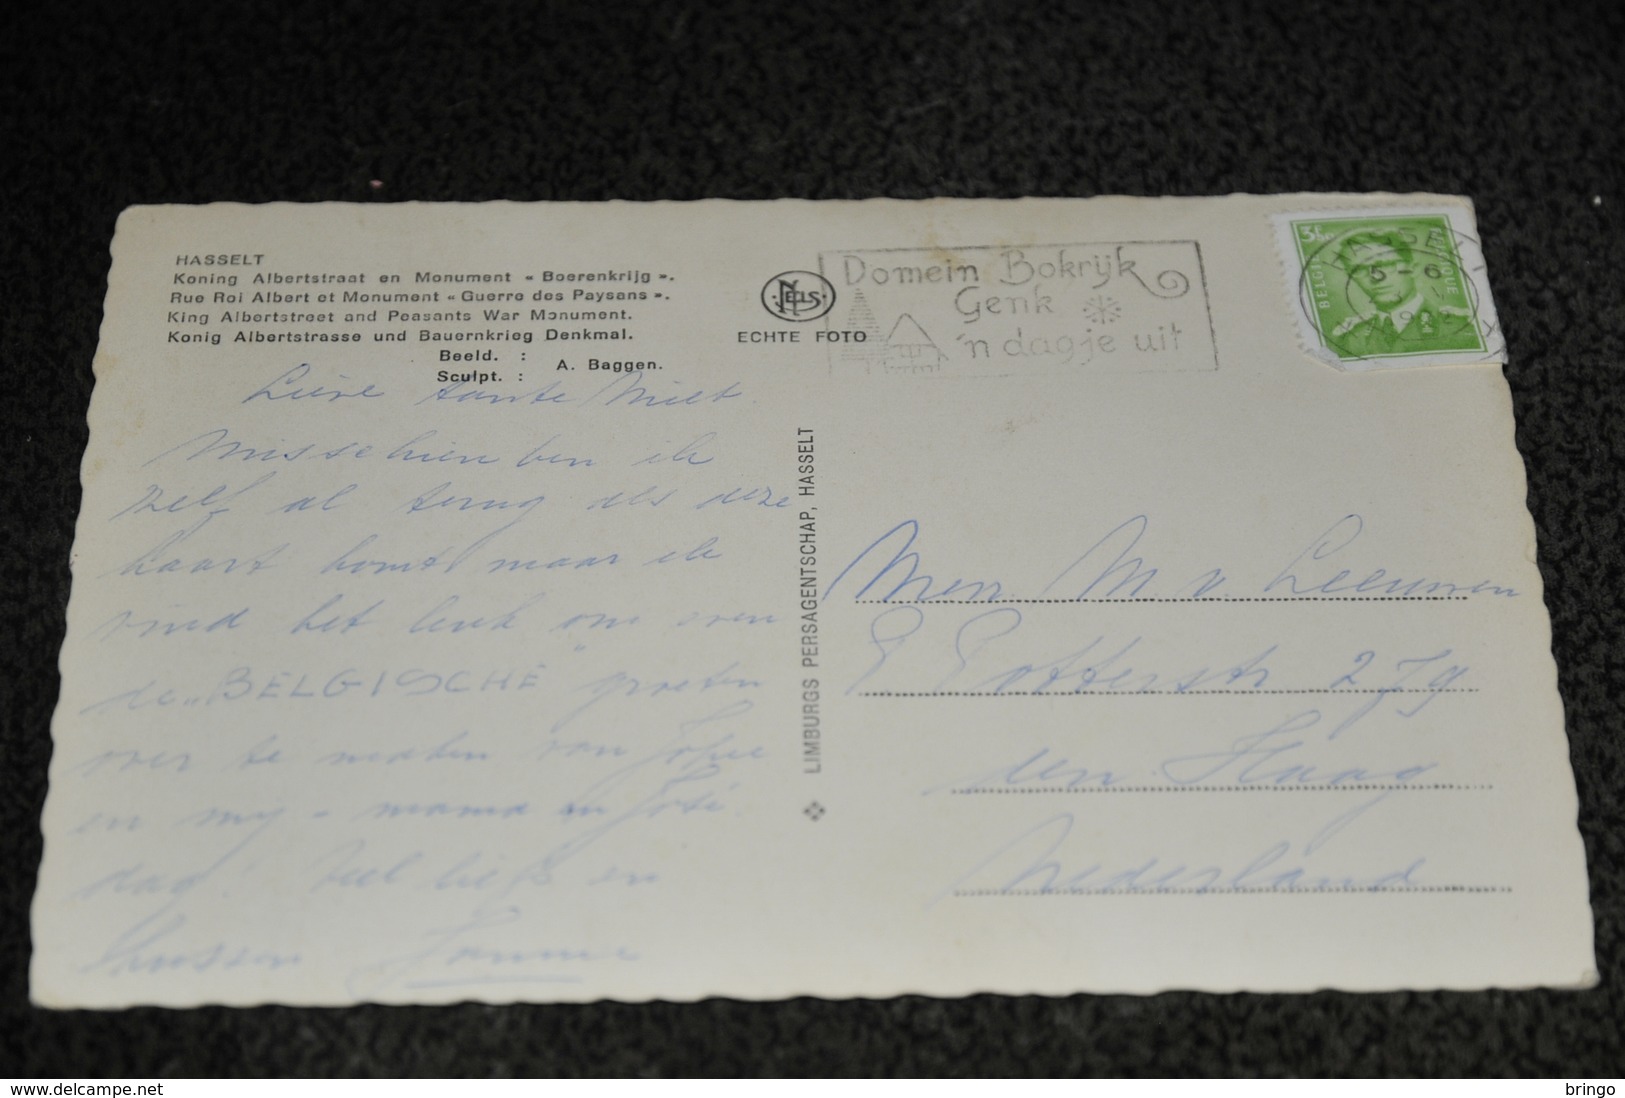 HASSELT
Koning Albertstraat en Monument « Boerenkrijg ».
Rue Roi Albert et Monument « Guerre des Paysans ».
King Albertstreet and Peasants War Monument.
Konig Albertstrasse und Bauernkrieg Denkmal.
Beeld. :
Sculpt. :
A. Baggen.
NELS
ECHTE FOTO
Domein Bokrijk
Genk
'n dagje uit
3F50
BELGIE
BELGIQUE
HASSELT
5-6
Lieve tante Miet
Misschien ben ik
zelf al terug als deze
kaart komt maar ik
vind het leuk om even
de „BELGISCHE" groeten
over te maken van
en my - mama en
dag! Veel liefs en
kussen
LIMBURGS PERSAGENTSCHAP, HASSELT
Mevr. M. v. Leeuwen
P. Potterstr 279
den Haag
Nederland
www.delcampe.net
bringo